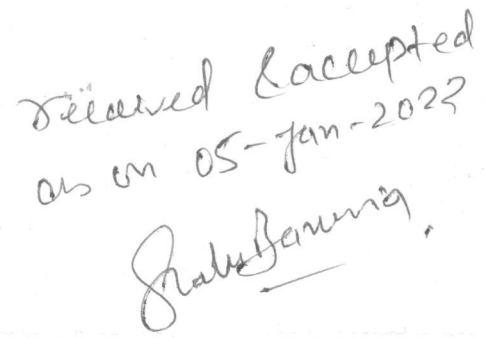 received & accepted
as on 05-Jan-2022